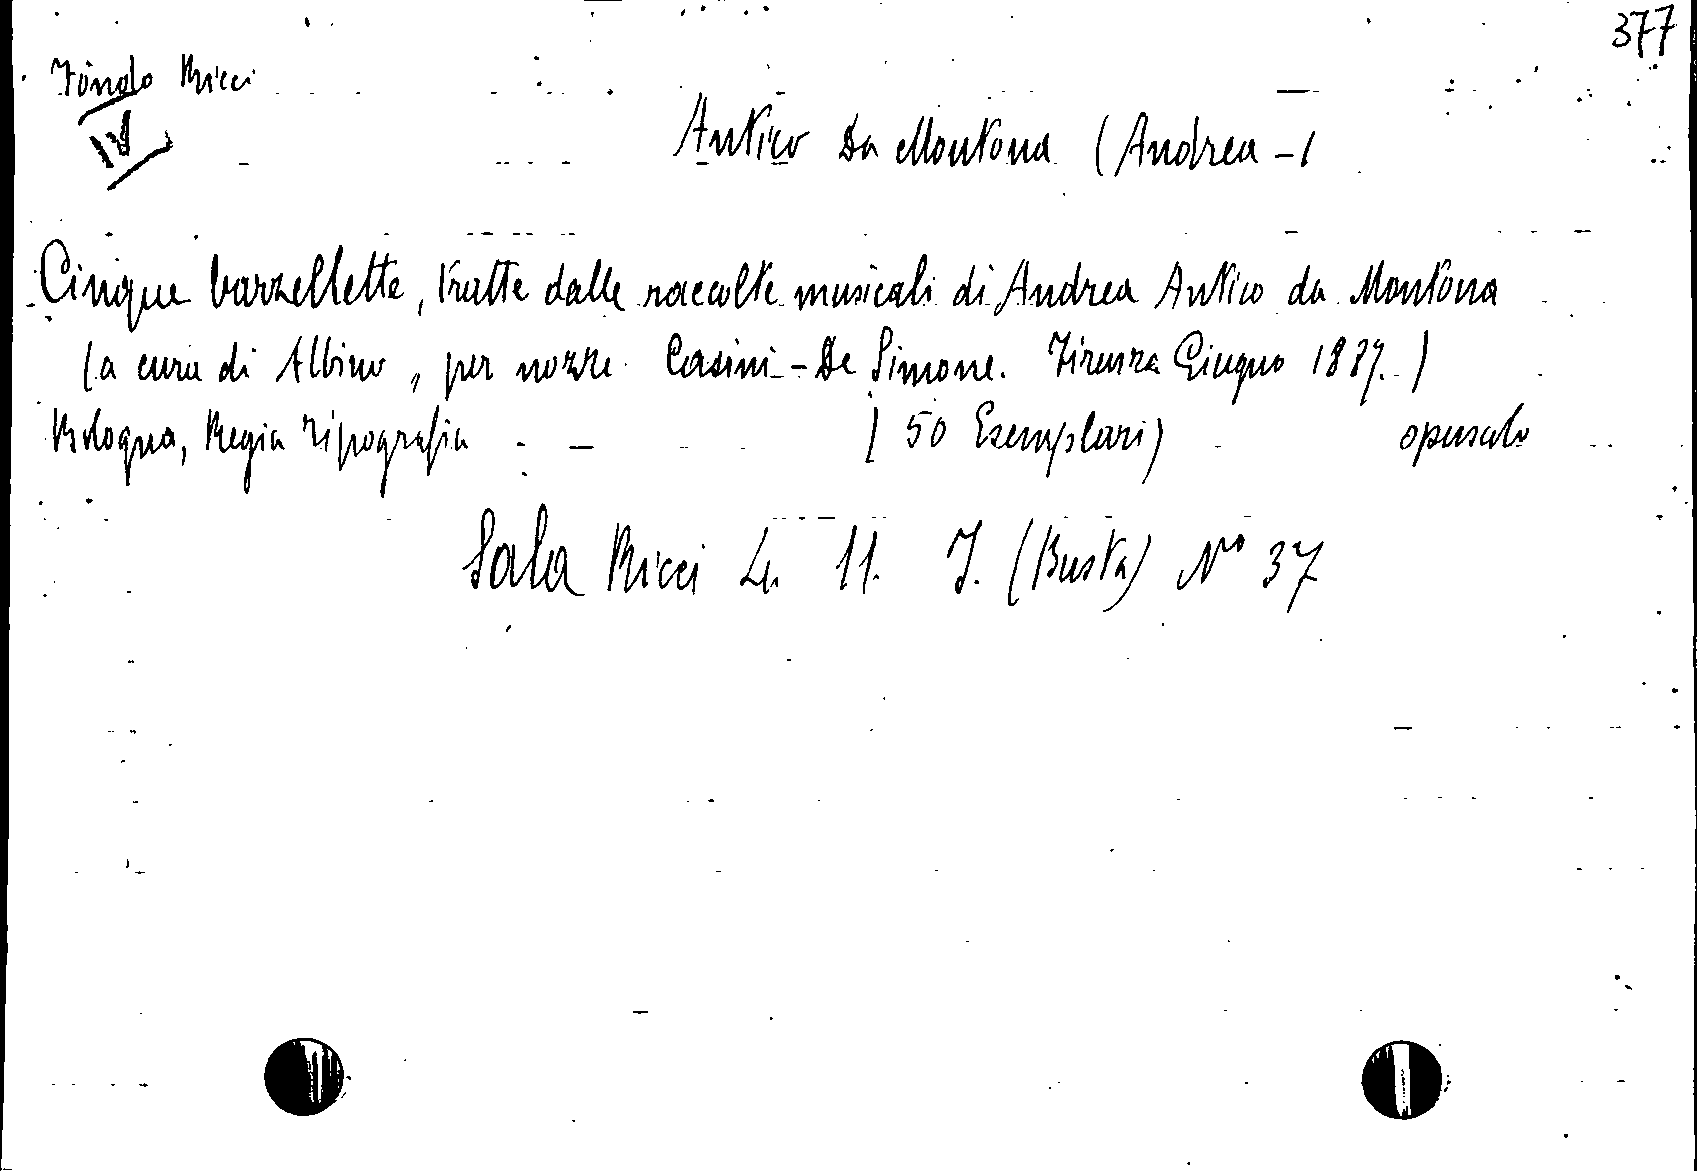 377
Fondo Ricci
IV
Antico Da Montona (Andrea - (
Cinque barzellette, tratte dalle raccolte musicali di Andrea Antico da Montona
(a cura di Albino, per nozze Casini - De Simone. Firenze Giugno 1887.)
Bologna, Regia Tipografia ( 50 Esemplari) opuscolo
Sala Ricci L. 11. I. (Busta) N° 37